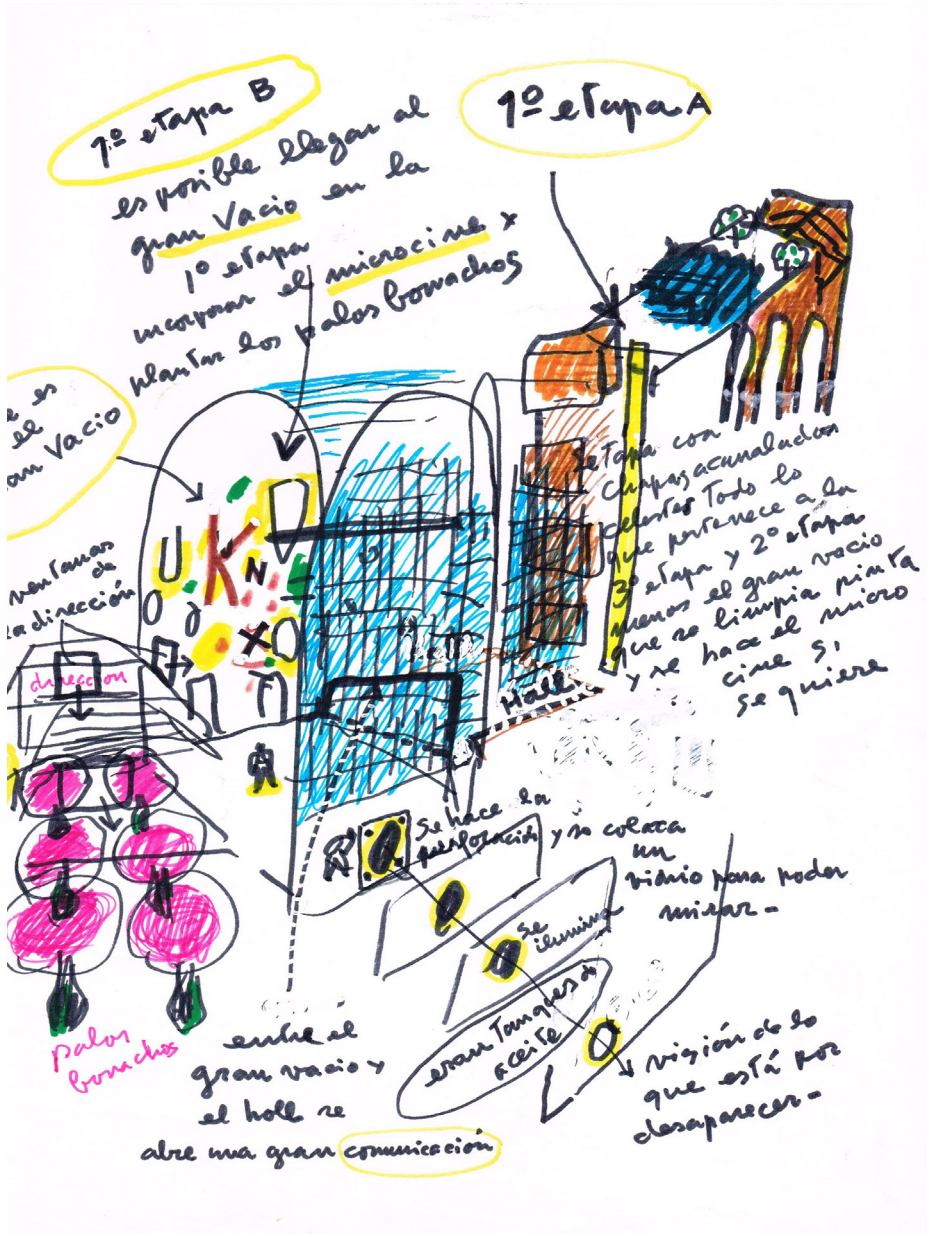 1º etapa B
es posible llegar al
gran Vacio en la
1º etapa
incorporar el microcine y
plantar los palos borrachos
1º etapa A
es
el
Vacio
ventanas
de
dirección
dirección
K
N
X
Se tapa con
chapas acanaladas
celestes Todo lo
que pertenece a la
3º etapa y 2º etapa
menos el gran vacio
que se limpia pinta
y se hace el micro
cine si
se quiere
Hall
Se hace la
perforación y se coloca
un
vidrio para poder
mirar-
Se
ilumina
eran Tanques de
aceite
visión de lo
que está por
desaparecer-
palos
borrachos
entre el
gran vacio y
el holl se
abre una gran comunicación